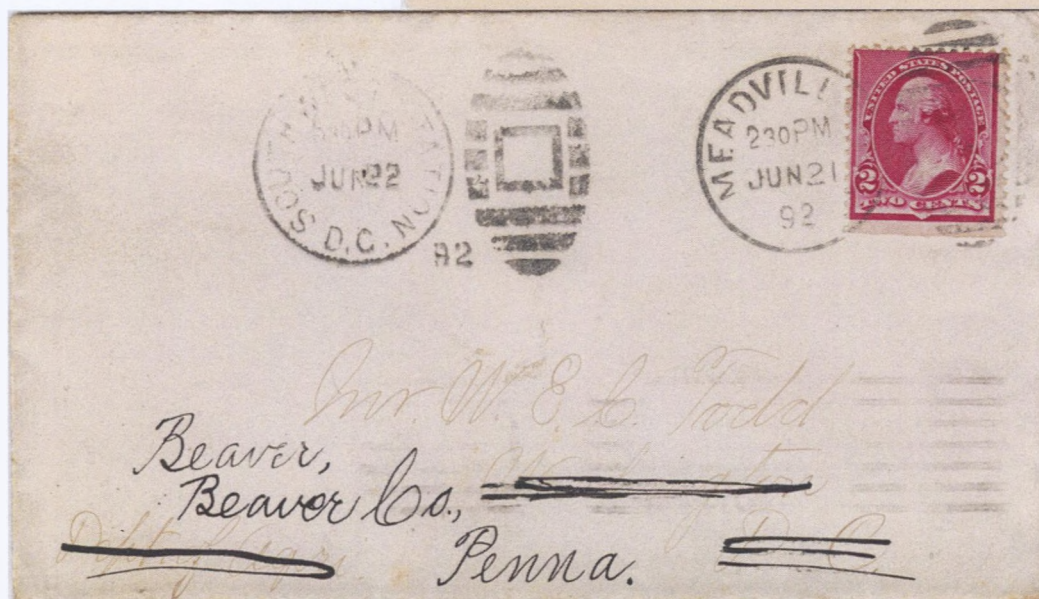 SOUTH STATION D.C.
JUN 22
92
MEADVILL
230PM
JUN 21
92
UNITED STATES POSTAGE
2 2
TWO CENTS
Mr. W. E. C. Todd
Washington
D. C.
Dept of Agri
Beaver,
Beaver Co.,
Penna.